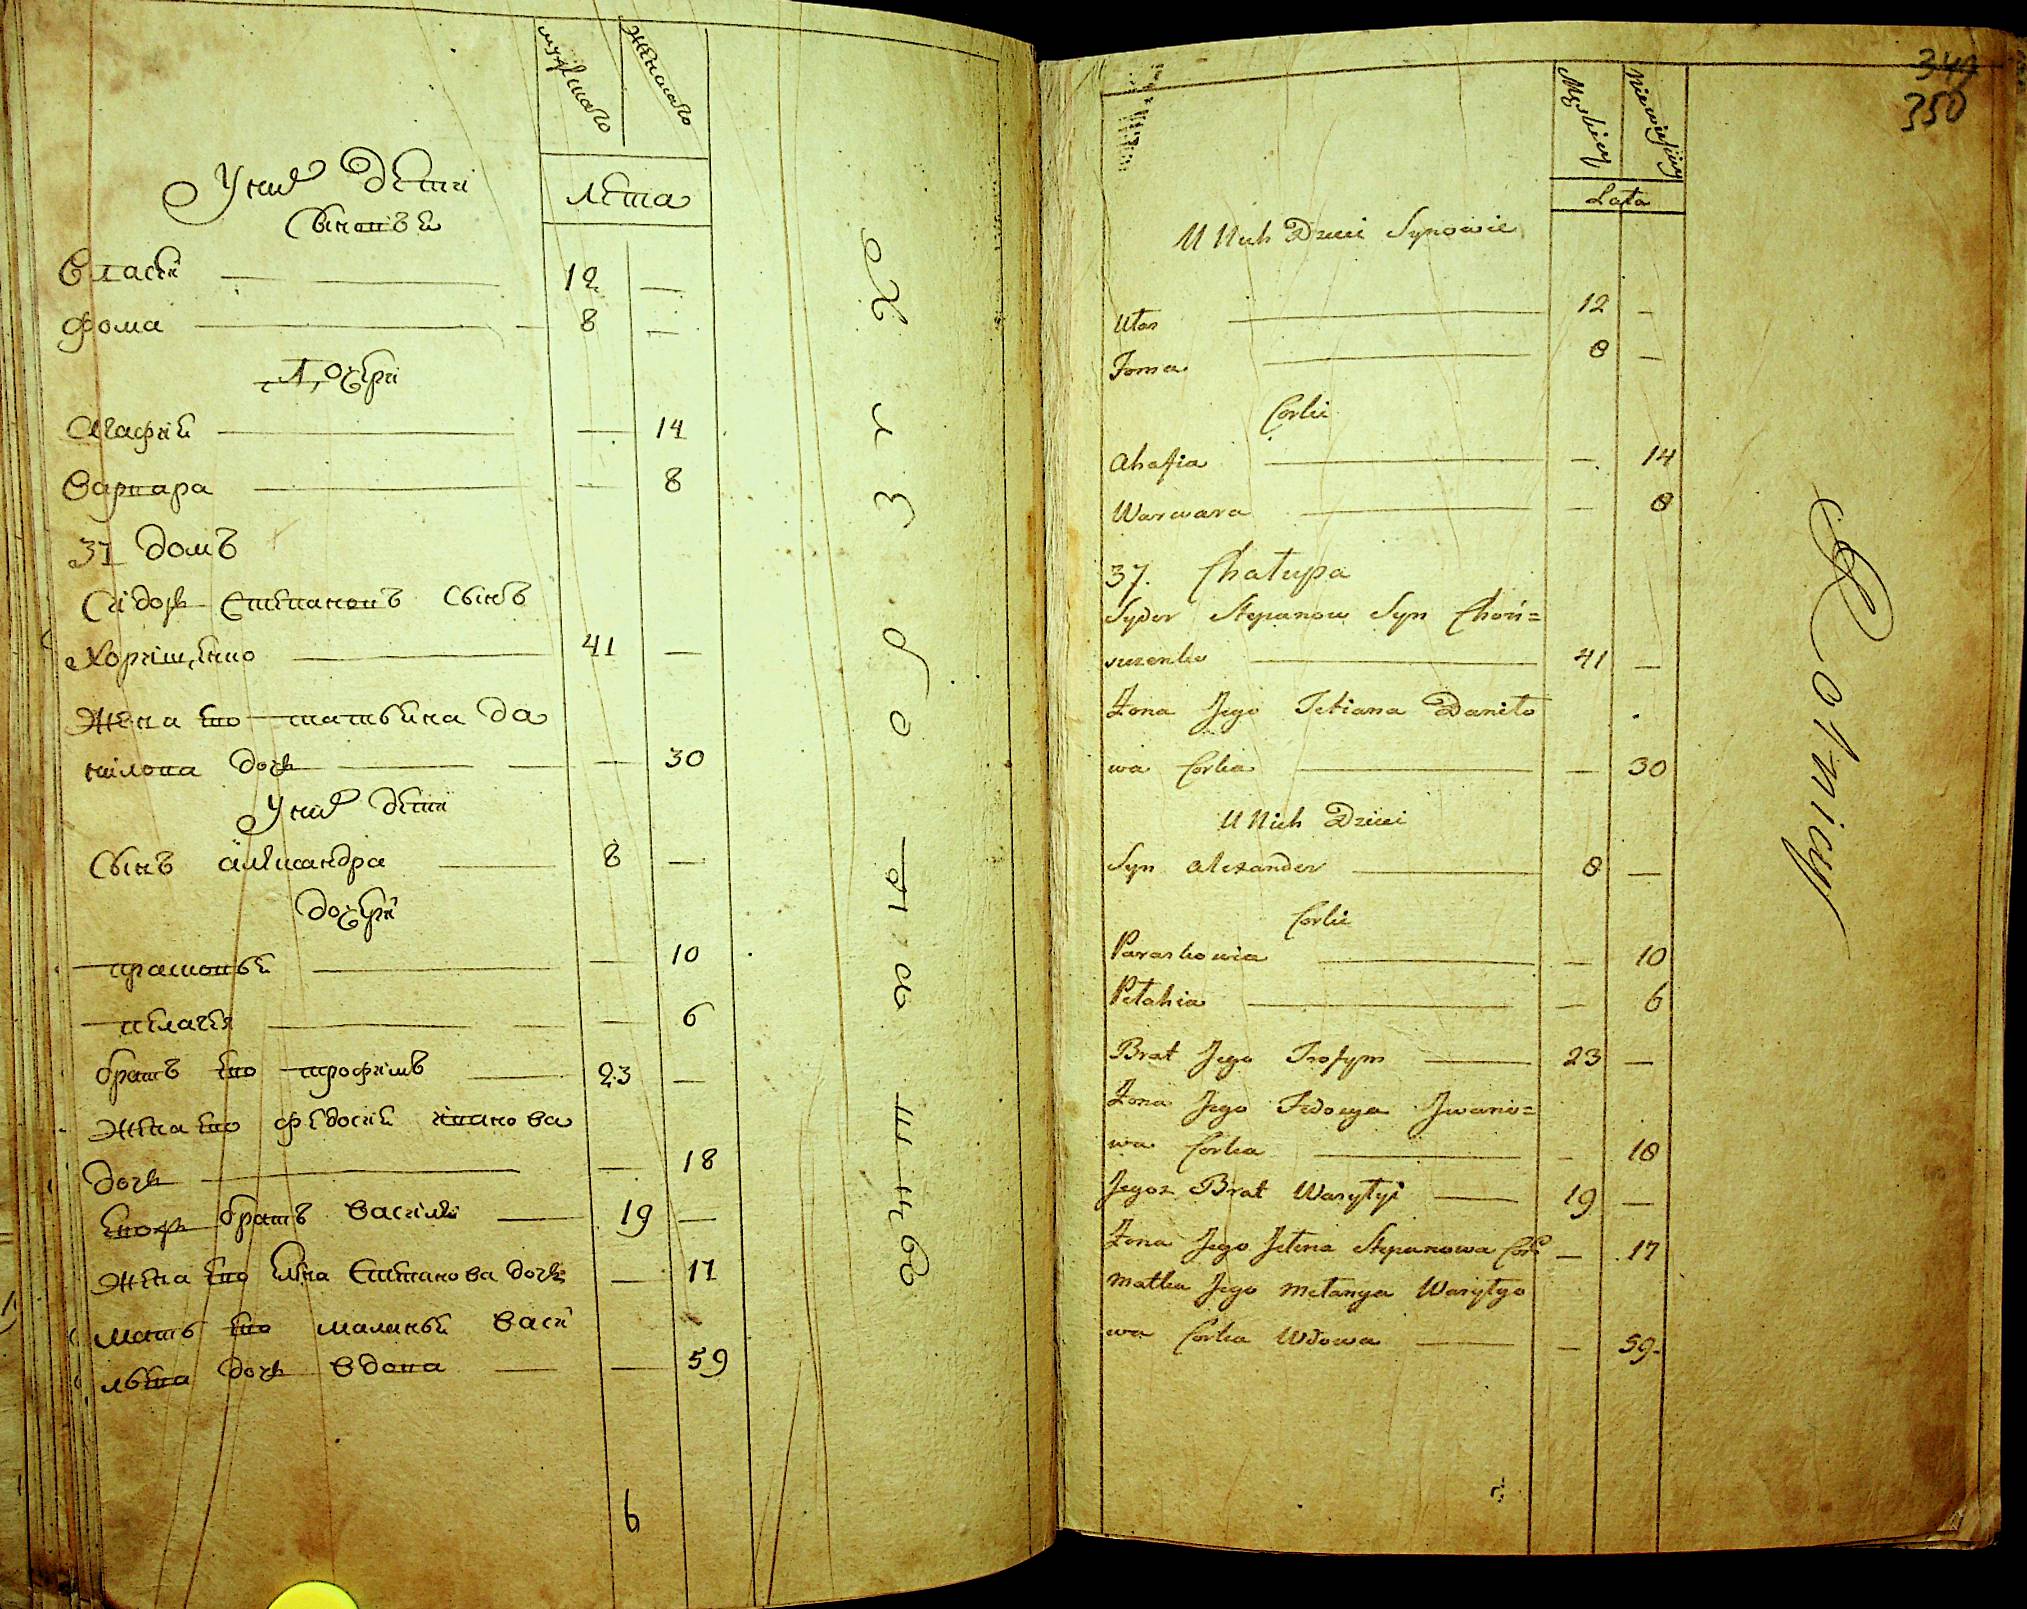 мужеска женска
Уних дети
лета
Синове
Власий — 12 —
Фома — 8 —
Дочери
Агафия — — 14
Варвара — — 8
37 домъ
Сидоръ Степановъ сынъ
41 —
Жена его татьяна Да
нилова дочь — — 30
Уних дети
Сынъ александра — 8 —
дочери
— — 10
пелагея — — 6
братъ его трофимъ — 23 —
Жена его федосия иванова
дочь — — 18
братъ Василий — 19 —
Жена его елена Степанова дочь — 17
мать его маланья Васи
льева дочь вдова — — 59
6
Хлеборобъ
349
350
Męskiey Niewieściey
Lata
U Nich Dzieci Synowie
Ułas — 12 —
Foma — 8 —
Corki
Ahafia — — 14
Warwara — — 8
37. Chałupa
Syder Stepanow Syn Choń=
— 41 —
Żona Jego Tetiana Daniło
wa Corka — — 30
U Nich Dzieci
Syn Alexander — 8 —
Corki
Paraskowia — — 10
Pełahia — — 6
Brat Jego Trofym — 23 —
Żona Jego Fedosya Jwano=
wa Corka — — 18
Jegoz Brat Wasyłyi — 19 —
Żona Jego Jełena Stepanowa Cor — 17
Matka Jego Małanya Wasyłyo
wa Corka Wdowa — — 59.
Rolnicy